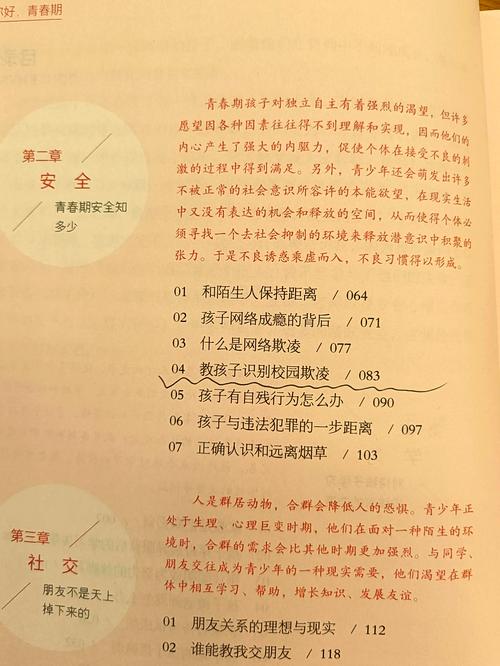 你好，青春期
第二章
安 全
青春期安全知
多少
青春期孩子对独立自主有着强烈的渴望，但许多
愿望因各种因素往往得不到理解和实现，因而他们的
内心产生了强大的内驱力，促使个体在接受不良的刺
激的过程中得到满足。另外，青少年还会萌发出许多
不被正常的社会意识所容许的本能欲望，在现实生活
中又没有表达的机会和释放的空间，从而使得个体必
须寻找一个去社会抑制的环境来释放潜意识中积聚的
张力。于是不良诱惑乘虚而入，不良习惯得以形成。
01 和陌生人保持距离 / 064
02 孩子网络成瘾的背后 / 071
03 什么是网络欺凌 / 077
04 教孩子识别校园欺凌 / 083
05 孩子有自残行为怎么办 / 090
06 孩子与违法犯罪的一步距离 / 097
07 正确认识和远离烟草 / 103
第三章
社 交
朋友不是天上
掉下来的
人是群居动物，合群会降低人的恐惧。青少年正
处于生理、心理巨变时期，他们在面对一种陌生的环
境时，合群的需求会比其他时期更加强烈。与同学、
朋友交往成为青少年的一种现实需要，他们渴望在群
体中相互学习、帮助，增长知识、发展友谊。
01 朋友关系的理想与现实 / 112
02 谁能教我交朋友 / 118